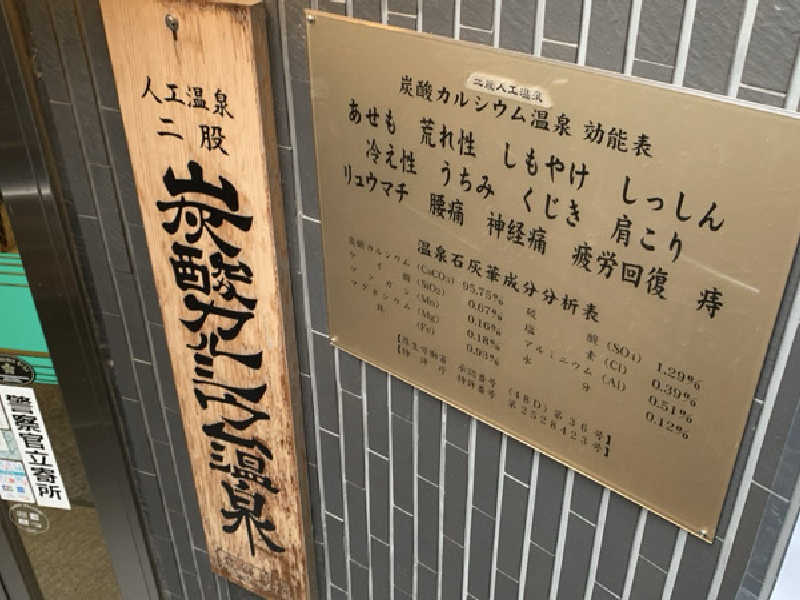 人工温泉
二股
炭酸カルシウム温泉
二股人工温泉
炭酸カルシウム温泉 効能表
あせも 荒れ性 しもやけ しっしん
冷え性 うちみ くじき 肩こり
リュウマチ 腰痛 神経痛 疲労回復 痔
温泉石灰華成分分析表
炭酸カルシウム (CaCO3) 95.75% 硫酸 (SO4) 1.29%
ケイ酸 (SiO2) 0.67% 塩素 (Cl) 0.39%
マンガン (Mn) 0.16% アルミニウム (Al) 0.51%
マグネシウム (Mg) 0.18% 水分 0.12%
鉄 (Fe) 0.93%
【厚生労働省 承認番号 (48D)第36号】
【特許庁 特許番号 第2528423号】
警察官立寄所